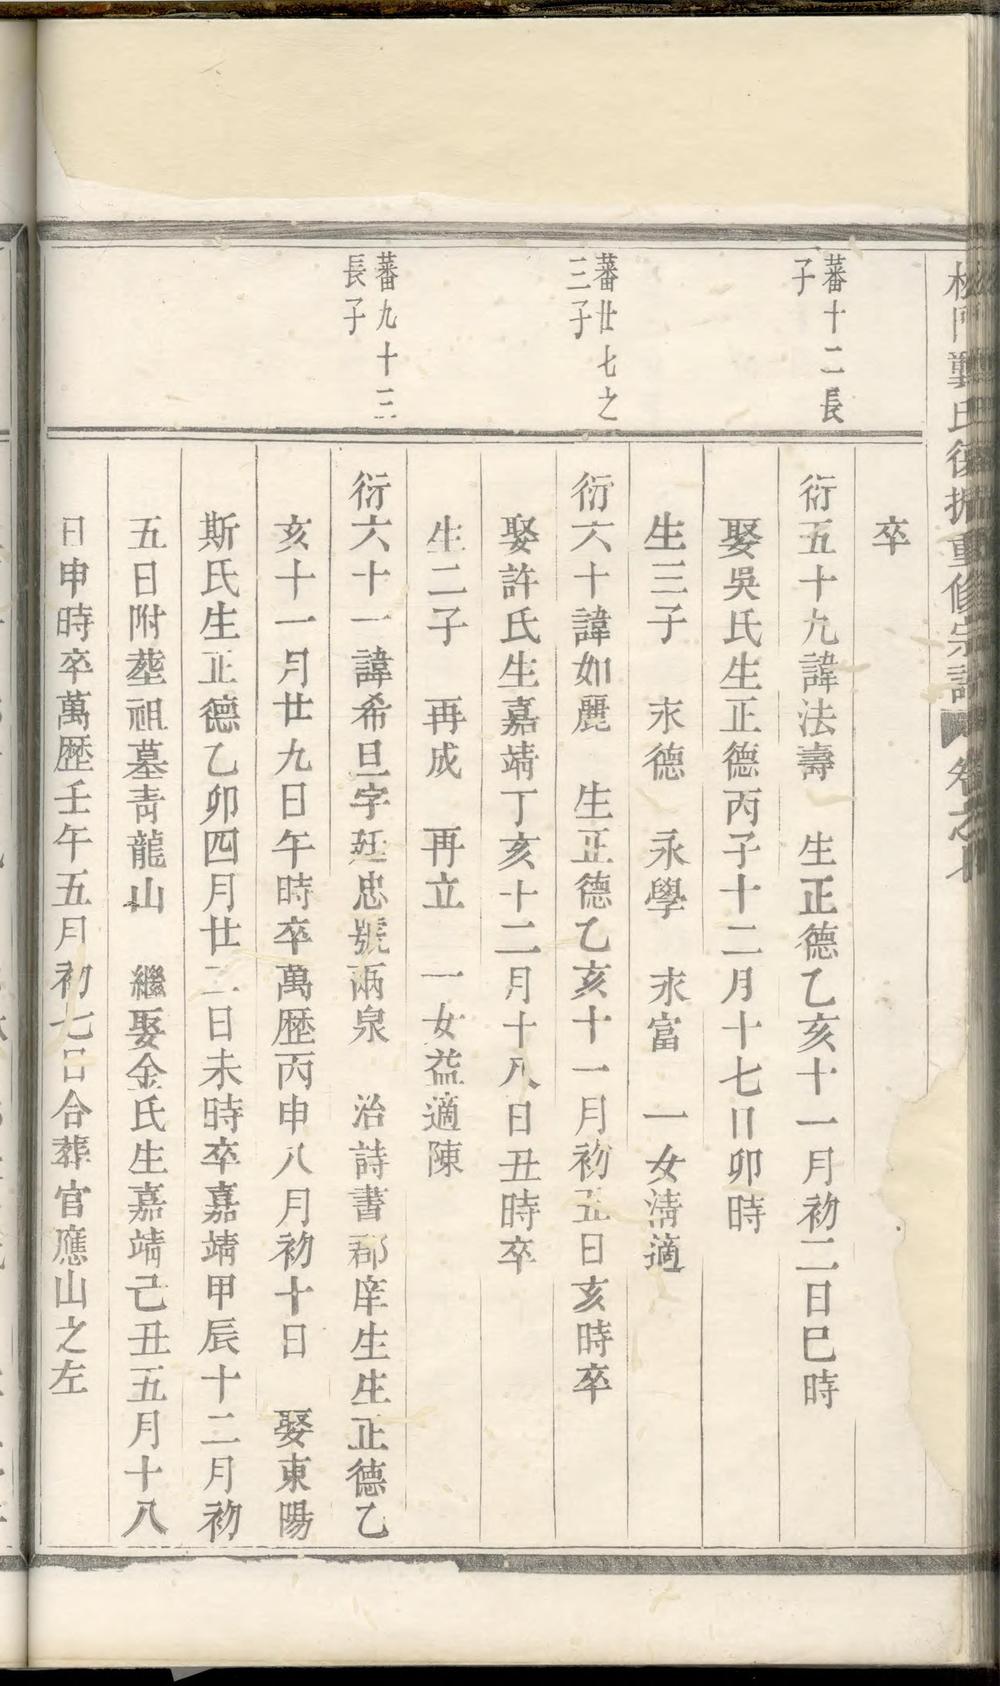 龔氏重修宗譜 卷之十
卒
蕃十二長
子
衍五十九諱法壽 生正德乙亥十一月初二日巳時
娶吳氏生正德丙子十二月十七日卯時
生三子 永德 永學 永富 一女淸適
蕃廿七之
三子
衍六十諱如麗 生正德乙亥十一月初五日亥時卒
娶許氏生嘉靖丁亥十二月十八日丑時卒
生二子 再成 再立 一女益適陳
蕃九十三
長子
衍六十一諱希旦字廷忠號兩泉 治詩書郡庠生生正德乙
亥十一月廿九日午時卒萬歷丙申八月初十日 娶東陽
斯氏生正德乙卯四月廿二日未時卒嘉靖甲辰十二月初
五日附塟祖墓青龍山 繼娶金氏生嘉靖己丑五月十八
日申時卒萬歷壬午五月初七日合葬官應山之左